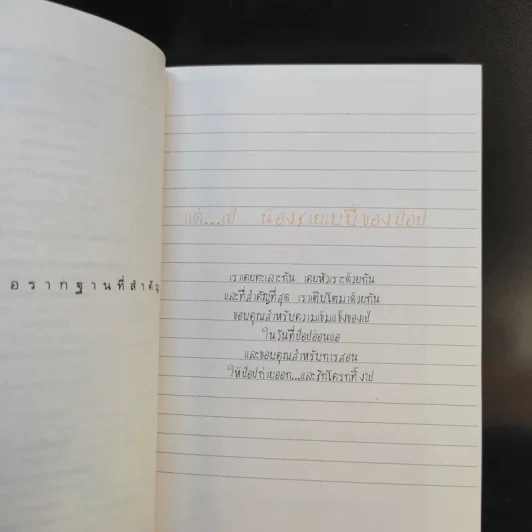 อรากฐานที่สำคัญ
แด่...เป้ น้องชายเบบี้ของป๊อป
เราเคยทะเลาะกัน เคยหัวเราะด้วยกัน
และที่สำคัญที่สุด เราเติบโตมาด้วยกัน
ขอบคุณสำหรับความเข้มแข็งของเป้
ในวันที่ป๊อปอ่อนแอ
และขอบคุณสำหรับการสอน
ให้ป๊อปถ่ายออก...และชักโครกทิ้งไป